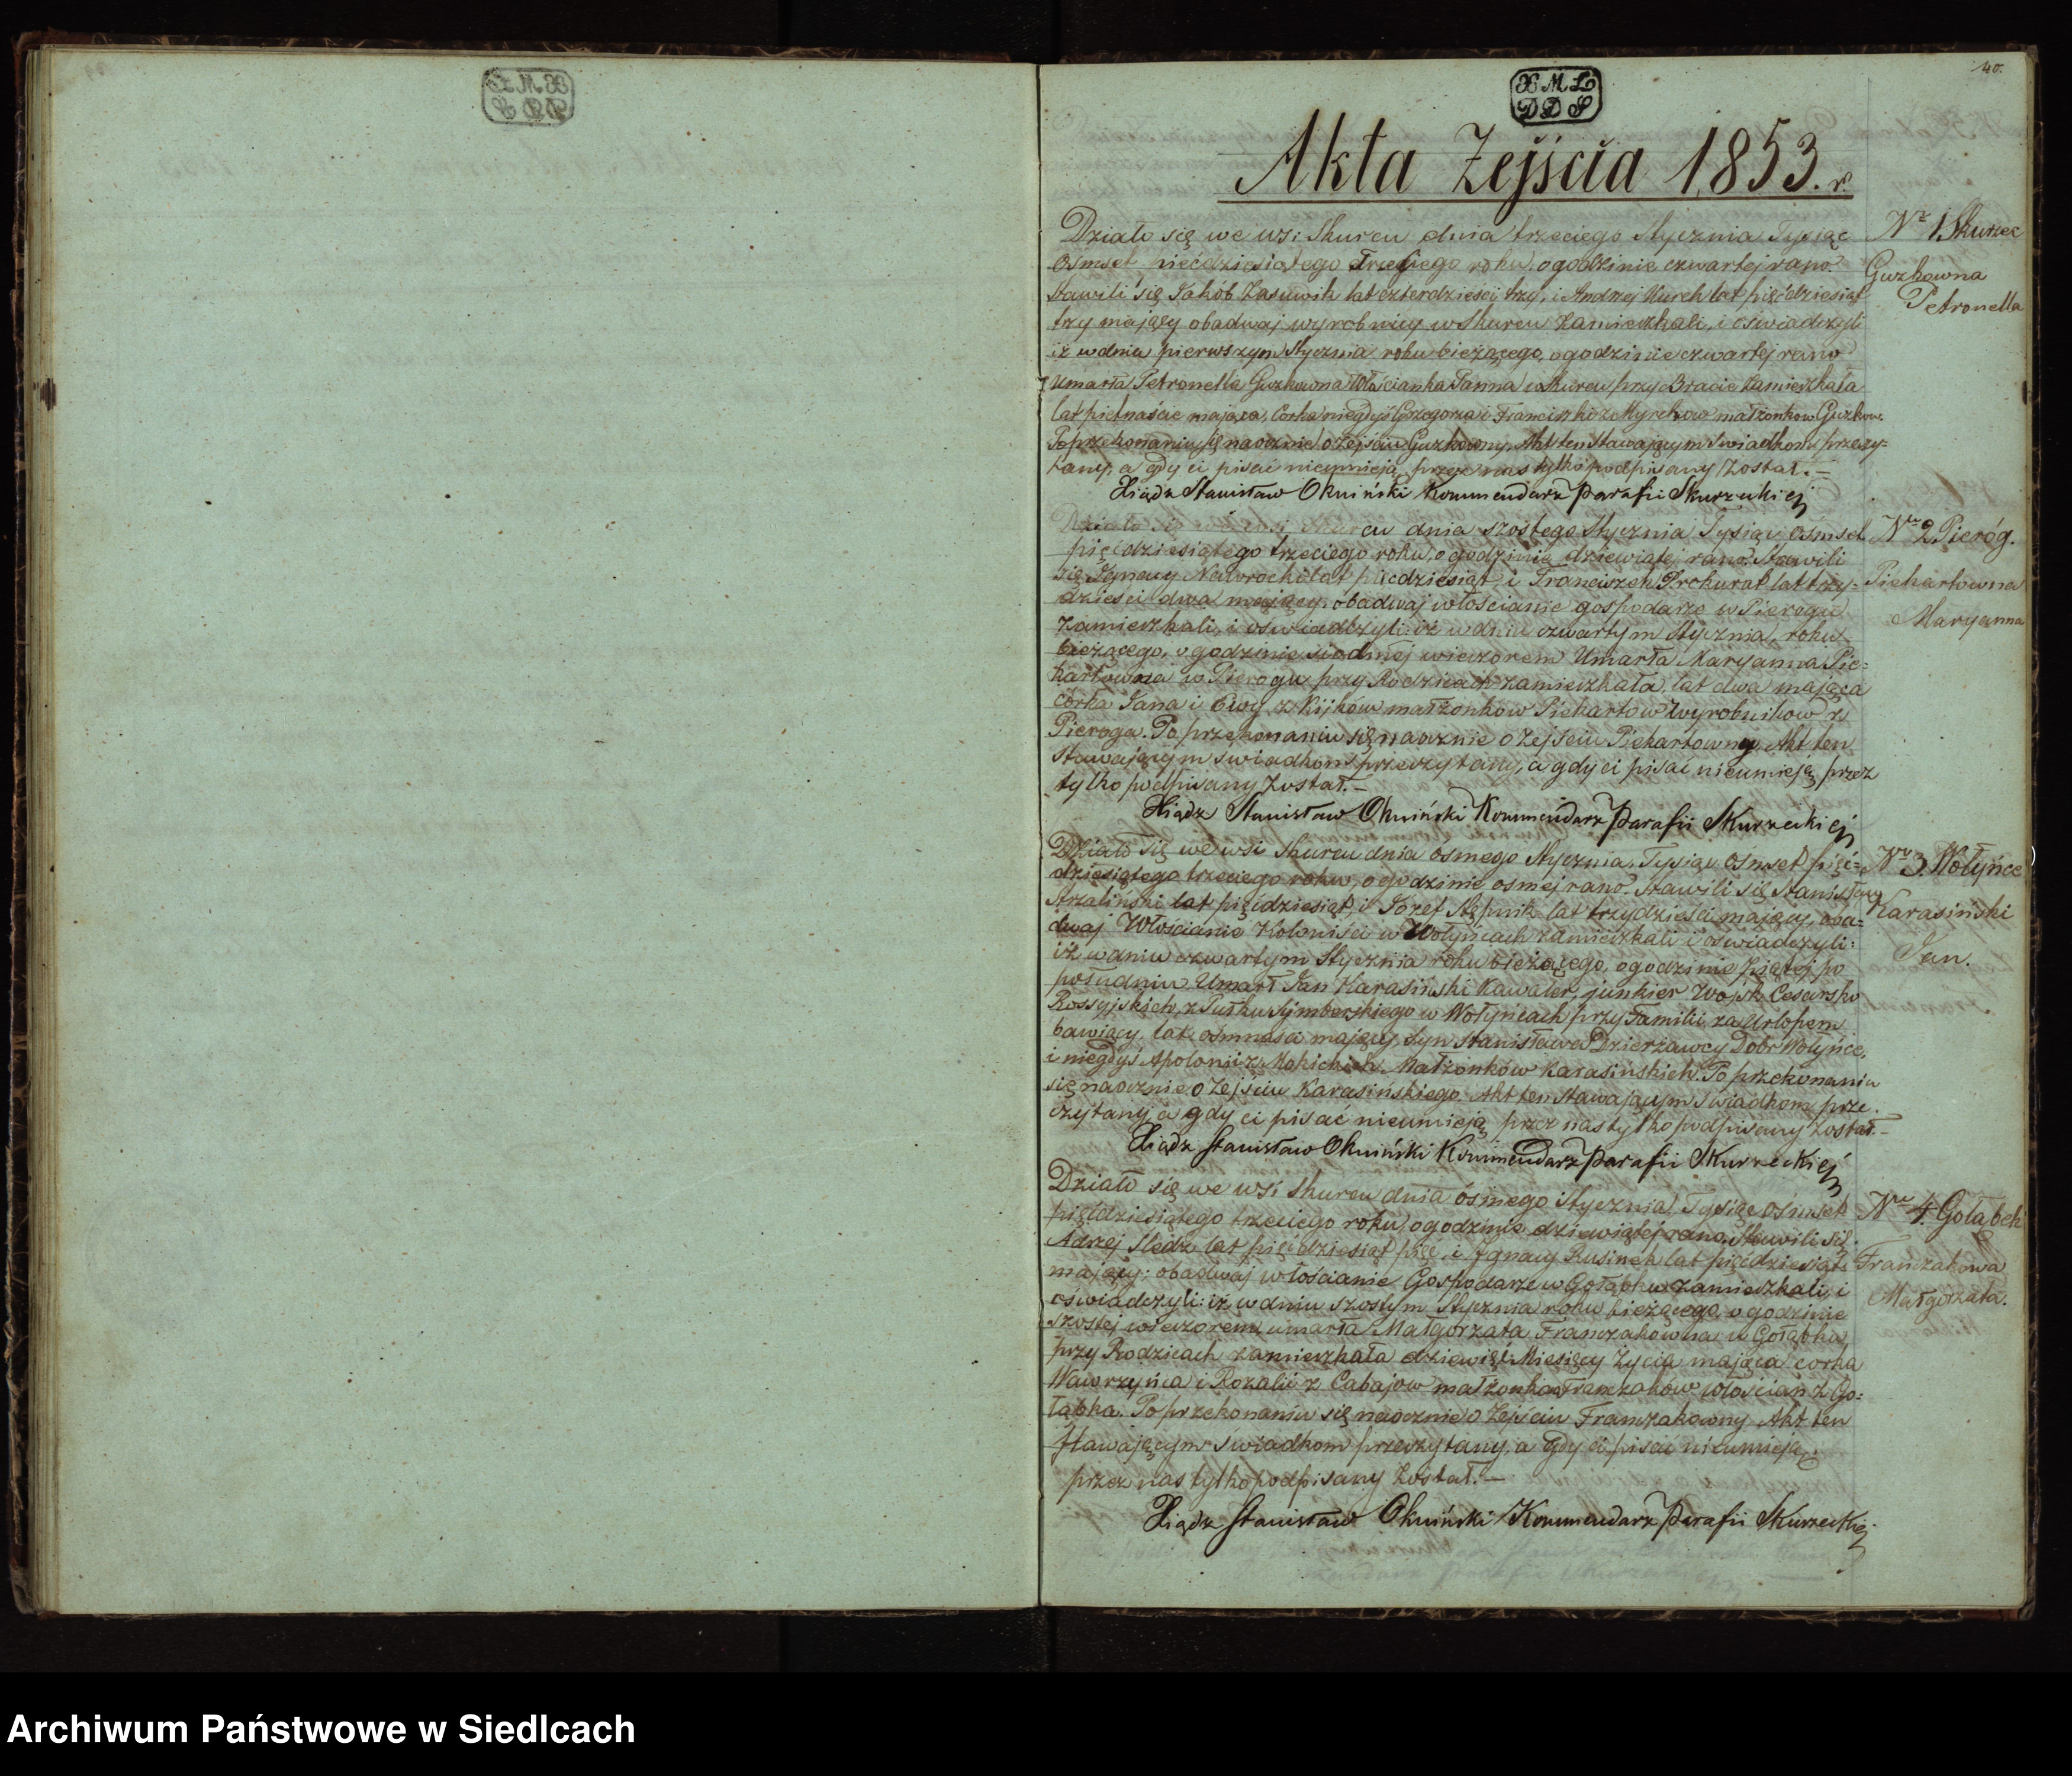 40.
X M L
D D S
Akta Zejścia 1853. r.
Nr 1 Skurzec
Guzkowna
Petronella
Działo się we wsi Skurcu dnia trzeciego Stycznia Tysiąc
Osmset piećdziesiątego trzeciego roku, o godzinie czwartej rano.
Stawili się Jakób Zasuwik lat czterdzieści trzy, i Andrzej Kureh lat pięćdziesiąt
trzy mający obadwaj wyrobnicy w Skurcu zamieszkali, i oświadczyli
iż w dniu pierwszym Stycznia roku bieżącego, o godzinie czwartej rano
umarła Petronella Guzkowna Włościanka Panna w Skurcu przy Bracie zamieszkała
lat pietnaście mająca, Corka niegdyś Grzegorza i Franciszki z Myrchow małzonkow Guzkow.
Po przekonaniu się naocznie o Zejściu Guzkowny, Akt ten Stawającym Swiadkom przeczy=
tany, a gdy ci pisać nieumieją przez nas tylko podpisany Został. —
Xiądz Stanisław Okniński Kommendarz Parafii Skurzeckiej
Nr 2 Pieróg.
Piekartowna
Maryanna
Działo się we wsi Skurcu dnia szostego Stycznia Tysiąc Ośmset
pięćdziesiątego trzeciego roku, o godzinie dziewiątej rano. Stawili
się Ignacy Nawrocki lat piećdziesiąt, i Franciszek Prokurat lat trzy=
dzieści dwa mający, obadwaj włościanie gospodarze w Pierogu
Zamieszkali, i oświadczyli: iż w dniu czwartym Stycznia, roku
bieżącego, o godzinie siodmej wieczorem Umarła Maryanna Pie=
kartowna w Pierogu przy Rodzicach zamieszkała, lat dwa mająca
Córka Jana i Ewy z Kijkow małżonkow Piekartow Wyrobnikow z
Pieroga. Po przekonaniu się naocznie o Zejściu Piekartowny, Akt ten
Stawającym swiadkom przeczytany, a gdy ci pisać nieumieją, przez
tylko podpisany Został. —
Xiądz Stanisław Okniński Kommendarz Parafii Skurzeckiej
Nr 3 Wołyńce
Karasiński
Jan.
Działo się we wsi Skurcu dnia osmego Stycznia, Tysiąc osmset pięć=
dziesiątego trzeciego roku, o godzinie osmej rano. Stawili się Stanisław
Strzaliński lat pięćdziesiąt, i Józef Stępnik lat trzydzieści mający, oba=
dwaj Włościanie Koloniści w Wołyńcach zamieszkali i oświadczyli:
iż w dniu czwartym Stycznia roku bieżącego, o godzinie piątej po
południu Umarł Jan Karasiński Kawaler, junkier Wojsk Cesarsko
Rossyjskich, z Pułku Symberskiego w Wołyńcach przy Familii za Urlopem
bawiący, lat osmnaści mający, Syn Stanisława Dzierżawcy Dobr Wołyńce,
i niegdyś Apolonii z Mokickich Małżonków Karasińskich. Po przekonaniu
się naocznie o Zejściu Karasińskiego. Akt ten Stawającym Swiadkom prze.
czytany, a gdy ci pisać nieumieją, przez nas tylko podpisany Został. —
Xiądz Stanisław Okniński Kommendarz Parafii Skurzeckiej
Nr 4. Gołąbek
Franczakowa
Małgorzata.
Działo się we wsi Skurcu dnia ósmego Stycznia, Tysiąc ośmset
pięćdziesiątego trzeciego roku, o godzinie dziewiątej rano. Stawili się
Adrzej Sledz lat pięćdziesiąt pięć, i Ignacy Rusinek lat pięćdziesiąt
mający; obadwaj włościanie Gospodarze w Gołąbku zamieszkali, i
oświadczyli: iż w dniu szostym Stycznia roku bieżącego, o godzinie
szostej wieczorem, umarła Małgorzata Franczakowna w Gołąbku
przy Rodzicach zamieszkała dziewięć Miesięcy Życia mająca corka
Wawrzyńca i Rozalii z Cabajow małżonkow Franczaków włościan z Go=
łąbka. Po przekonaniu się naocznie o Zejściu Franczakowny Akt ten
Stawającym Swiadkom przeczytany, a gdy ci pisać nieumieją,
przez nas tylko podpisany Został. —
Xiądz Stanisław Okniński Kommendarz Parafii Skurzeckiej
Archiwum Państwowe w Siedlcach